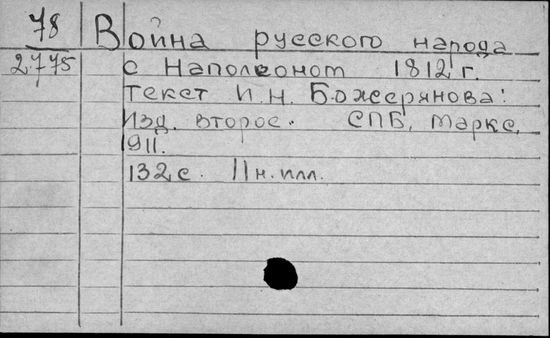 78
2775
Война русского народа
с Наполеоном 1812 г.
Текст И.Н. Божерянова.
Изд. второе. СПБ, Маркс,
1911.
132 с. 11 н. илл.